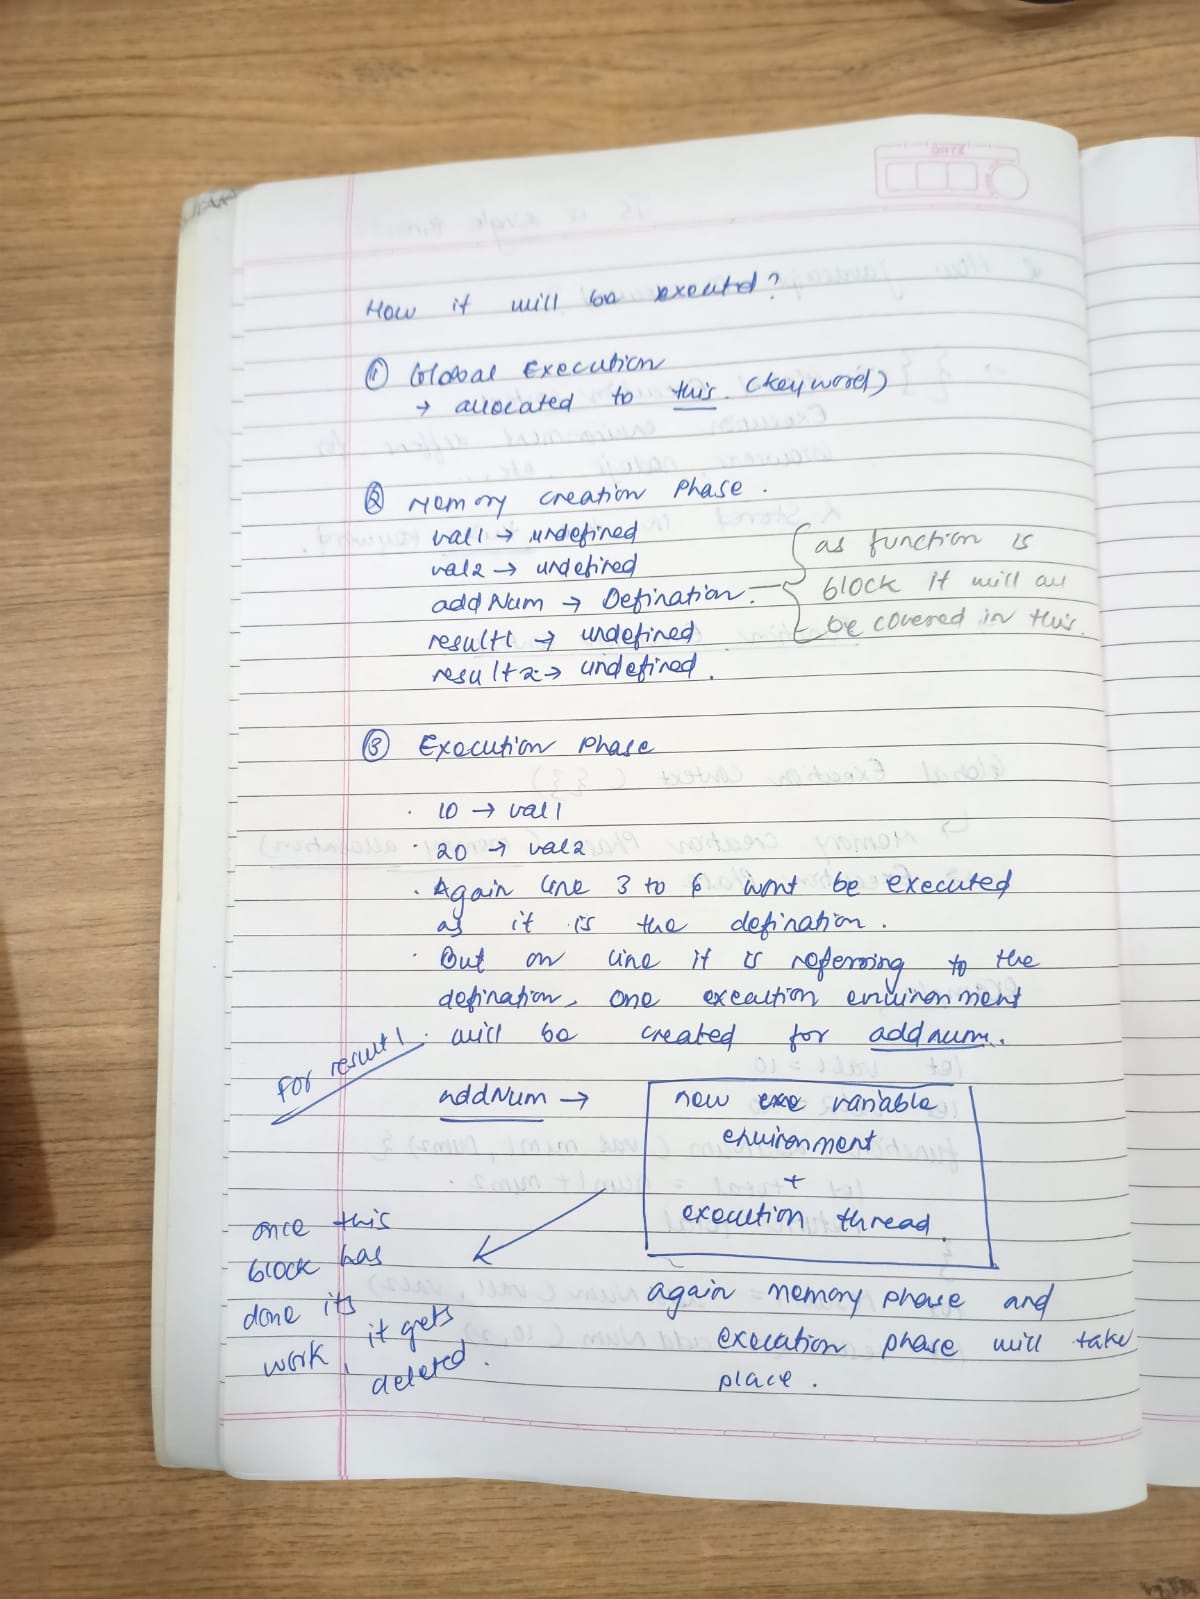 How it will be executd?
① Global Execution
→ allocated to this. (keyword)
② Memory creation Phase.
val1 → undefined
val2 → undefined
addNum → Defination.
result1 → undefined
result2 → undefined.
as function is
block it will all
be covered in this.
③ Execution Phase
· 10 → val1
· 20 → val2
· Again line 3 to 6 wont be executed
as it is the defination.
· But on line it is referring to the
defination, one execution environment
will be created for addnum.
For result1.
addNum →
new exe variable
environment
+
execution thread.
once this
block has
done its
work, it gets
deleted.
again memory phase and
execution phase will take
place.